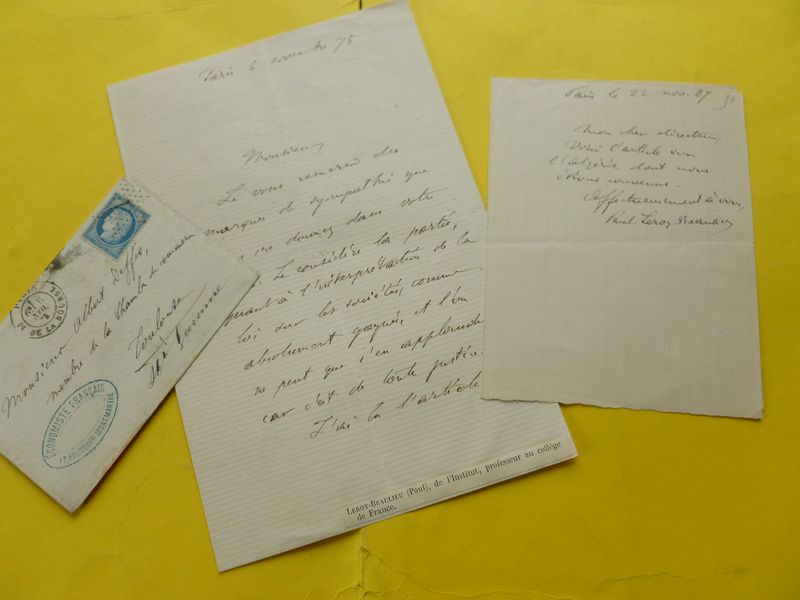 Monsieur Albert Deffès,
membre de la Chambre de commerce
Toulouse
Hte Garonne
ECONOMISTE FRANÇAIS
17 FAUBOURG MONTMARTRE
PL. DE LA BOURSE
Paris 6 novembre 78
Monsieur,
Je vous remercie des
marques de sympathie que
me donnez dans votre
Je considère la partie,
quant à l'interprétation de la
loi sur les sociétés, comme
absolument gagnée, et l'on
ne peut que s'en applaudir
car c'est de toute justice.
J'ai lu l'article
LEROY-BEAULIEU (Paul), de l'Institut, professeur au collège
de France.
Paris le 22 nov. 87
Mon cher directeur,
Voici l'article sur
l'Algérie dont nous
étions convenus.
Affectueusement à vous,
Paul Leroy-Beaulieu